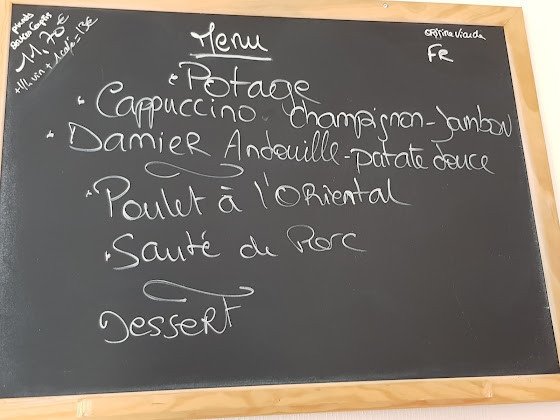 11,70€
+1/4 vin + 1 café = 13€
origine viande
FR
Menu
• Potage
• Cappuccino champignon-Jambon
• Damier Andouille-patate douce
• Poulet à l'Oriental
• Sauté de Porc
Dessert